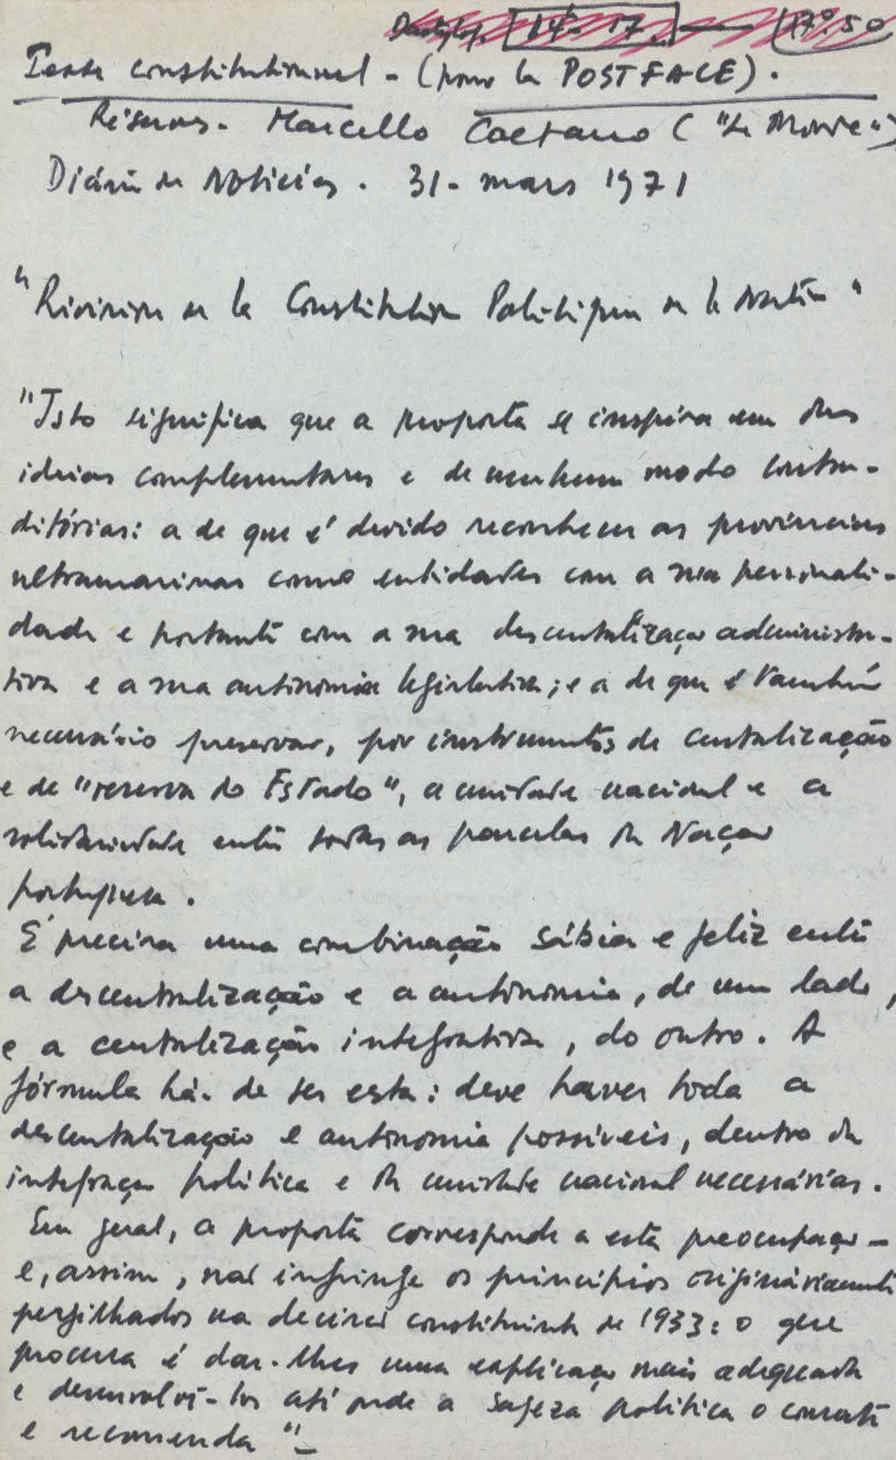 Dactylog. 14 - 17
Texte constitutionnel - (pour la POSTFACE).
Réserves. Marcello Caetano ("Le Monde")
Diário de Notícias. 31 - mars 1971
"Révision de la Constitution Politique de la Nation"
"Isto significa que a proposta se inspira em duas
ideias complementares e de nenhum modo contra-
ditórias: a de que é devido reconhecer as províncias
ultramarinas como entidades com a sua personali-
dade e portanto com a sua descentralização administra-
tiva e a sua autonomia legislativa; e a de que é também
necessário preservar, por instrumentos de centralização
e de "reserva do Estado", a unidade nacional e a
solidariedade entre todas as parcelas da Nação
portuguesa.
É precisa uma combinação sábia e feliz entre
a descentralização e a autonomia, de um lado,
e a centralização integrativa, do outro. A
fórmula há-de ser esta: deve haver toda a
descentralização e autonomia possíveis, dentro da
integração política e da unidade nacional necessárias.
Em geral, a proposta corresponde a esta preocupação -
e, assim, não infringe os princípios originàriamente
perfilhados na decisão constituinte de 1933: o que
procura é dar-lhes uma explicação mais adequada
e desenvolvê-los até onde a sageza política o consente
e recomenda" -